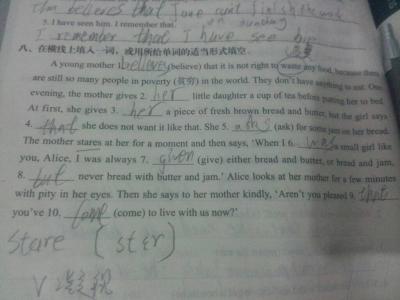 Tim believes that Jane can't finish the work
on sunday
5. I have seen him. I remember that.
I remember that I have see him
八、在横线上填入一词,或用所给单词的适当形式填空。
A young mother 1. believes (believe) that it is not right to waste any food, because there
are still so many people in poverty (贫穷) in the world. They don't have anything to eat. One
evening, the mother gives 2. her little daughter a cup of tea before putting her to bed.
At first, she gives 3. her a piece of fresh brown bread and butter, but the girl says
4. that she does not want it like that. She 5. asks (ask) for some jam on her bread.
The mother stares at her for a moment and then says, 'When I 6. was a small girl like
you, Alice, I was always 7. given (give) either bread and butter, or bread and jam,
8. but never bread with butter and jam.' Alice looks at her mother for a few minutes
with pity in her eyes. Then she says to her mother kindly, 'Aren't you pleased 9. that
you've 10. come (come) to live with us now?'
stare [stər]
V 凝视